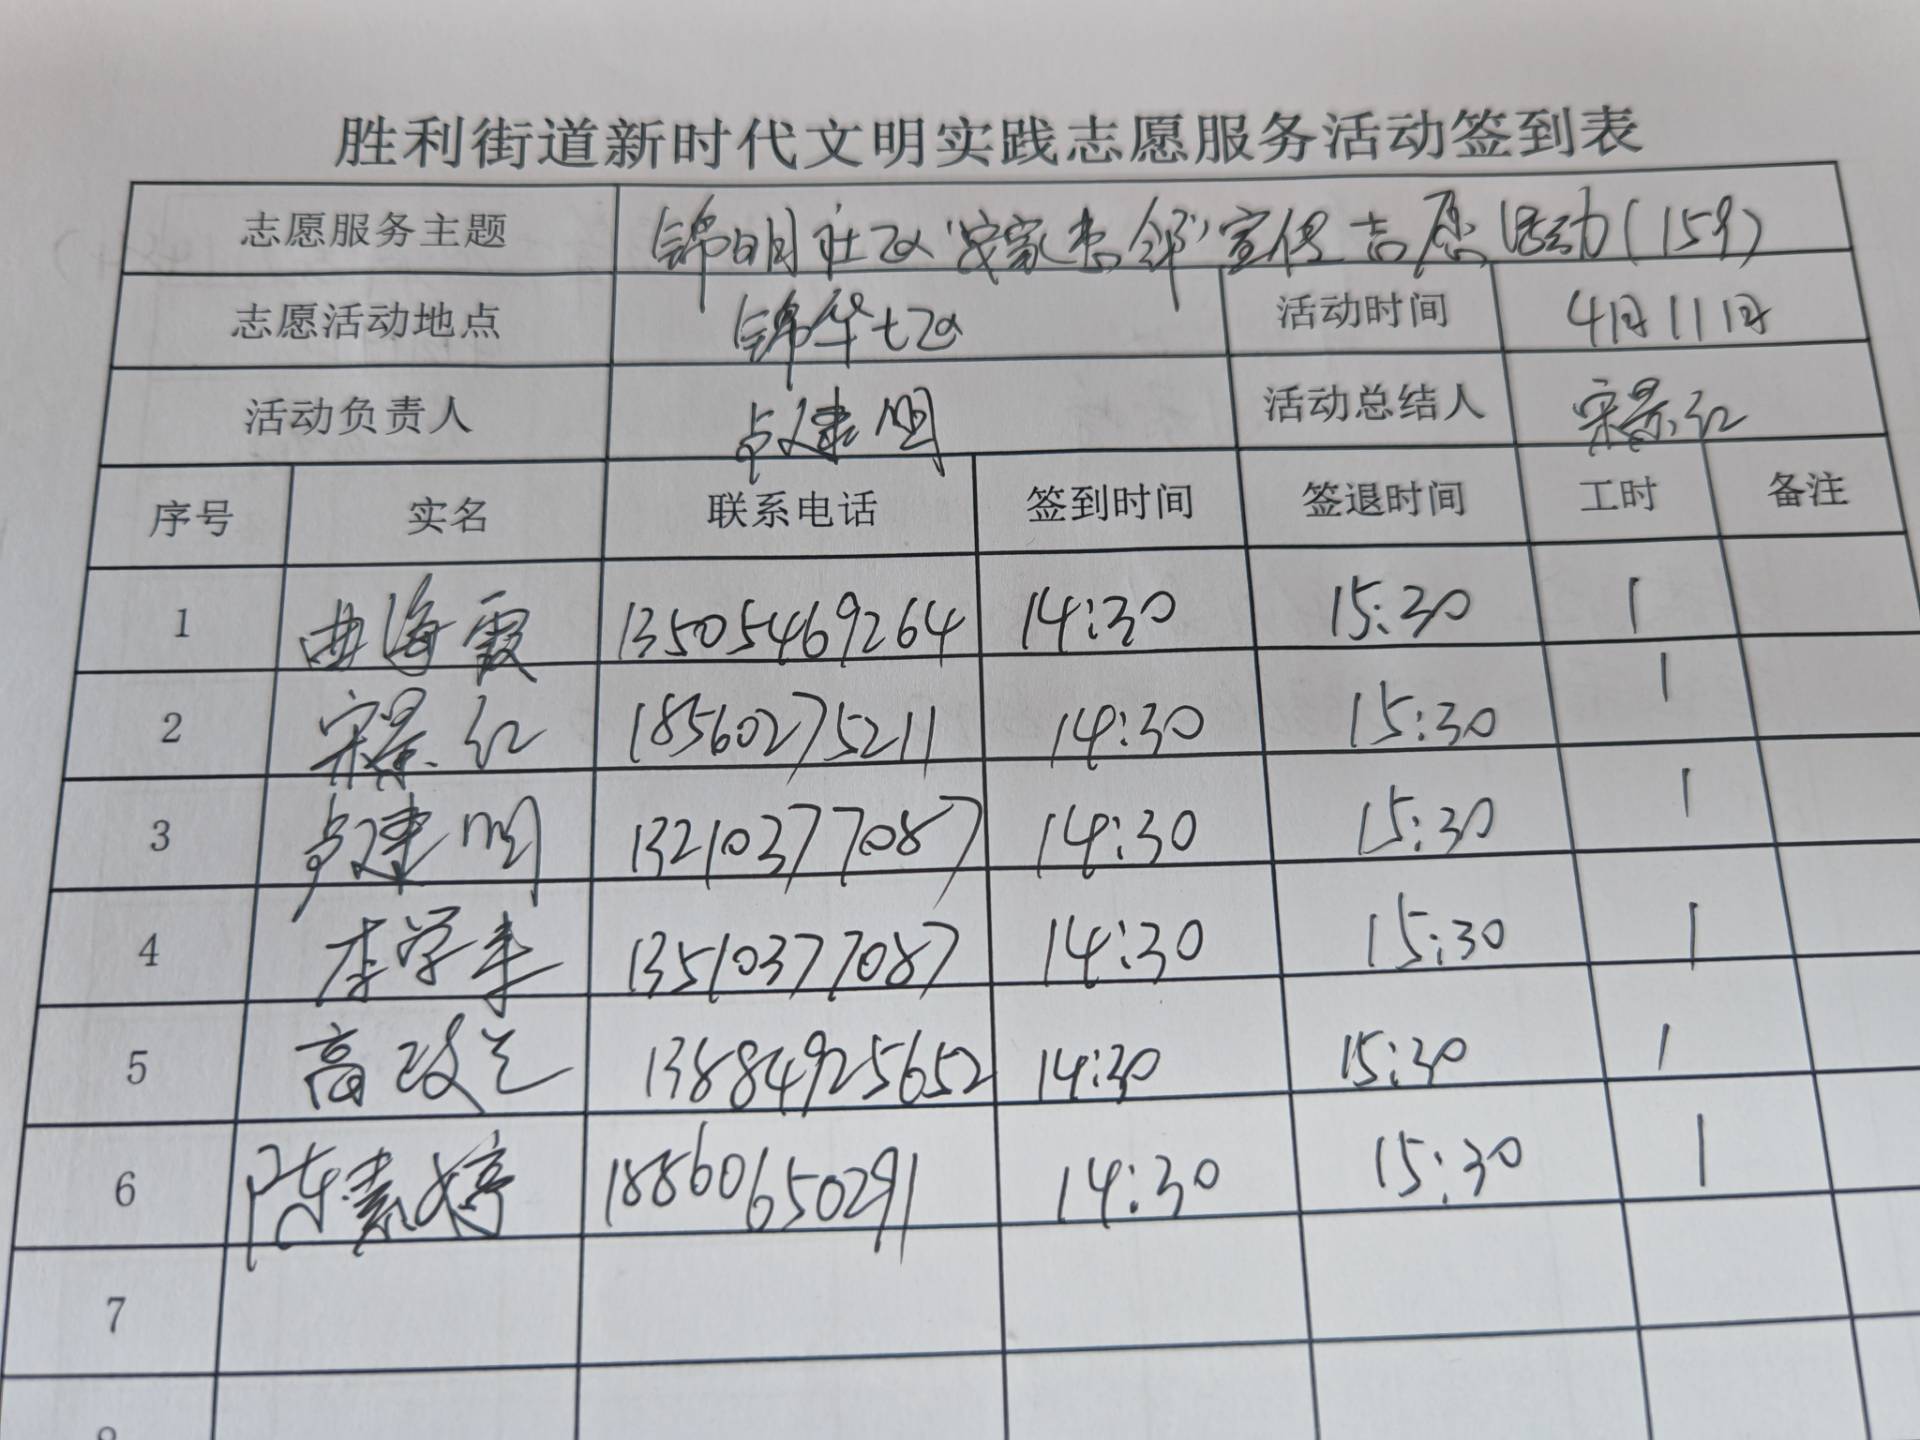 胜利街道新时代文明实践志愿服务活动签到表
志愿服务主题 锦明社区"安家惠邻"宣传志愿活动(159)
志愿活动地点 锦华七区 活动时间 4月11日
活动负责人 卢建明 活动总结人 宋景红
序号 实名 联系电话 签到时间 签退时间 工时 备注
1 曲海霞 13505469264 14:30 15:30 1
2 宋景红 18560275211 14:30 15:30 1
3 卢建明 13210377087 14:30 15:30 1
4 李学来 13510377087 14:30 15:30 1
5 高改兰 13884925652 14:30 15:30 1
6 陈素婷 18860650291 14:30 15:30 1
7